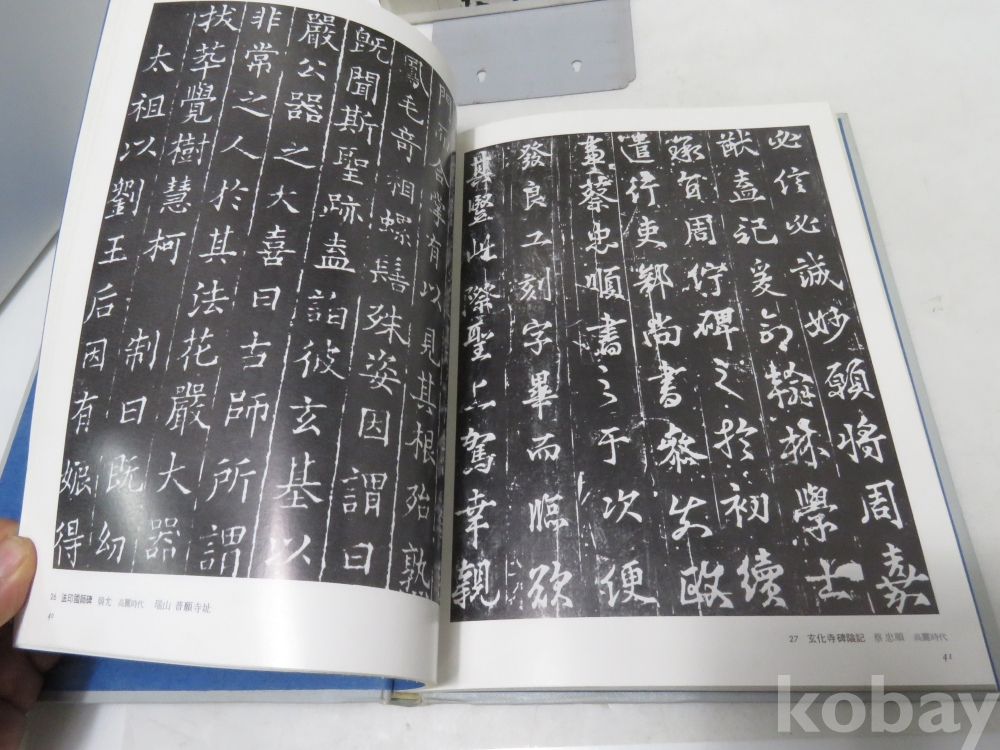 有以見其根殆熟
鳳毛奇相螺髻殊姿因謂曰
既聞斯聖跡盍詣彼玄基以
嚴公器之大喜曰古師所謂
非常之人於其法花嚴大器
拔萃覺樹慧柯 制曰既幼
太祖以劉王后因有娠得
26 法印國師碑 韓允 高麗時代 瑞山 普願寺址
40
必信必誠妙願將周嘉
猷盍記爰命翰林學士
承旨周佇碑之於初續
遣行吏部尚書叅知政
事蔡忠順書之于次便
發良工刻字畢而臨欲
其豎此際聖上駕幸親
27 玄化寺碑陰記 蔡忠順 高麗時代
41
kobay